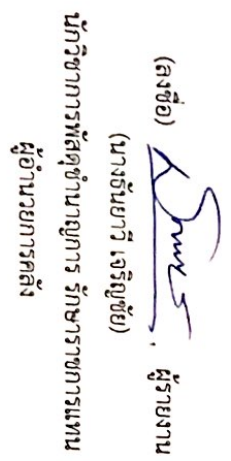 (ลงชื่อ) ผู้รายงาน
(นางธันยาวี เจริญชัย)
นักวิชาการพัสดุชำนาญการ รักษาราชการแทน
ผู้อำนวยการคลัง